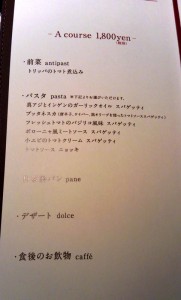 - A course 1,800yen -
(税別)
・前菜 antipast
トリッパのトマト煮込み
・パスタ pasta ※下記よりお選びいただけます。
真アジとインゲンのガーリックオイル スパゲッティ
プッタネスカ
フレッシュトマトのバジリコ風味 スパゲッティ
ボローニャ風ミートソース スパゲッティ
小エビのトマトクリーム スパゲッティ
トマトソース ニョッキ
pane
・デザート dolce
・食後のお飲物 caffè